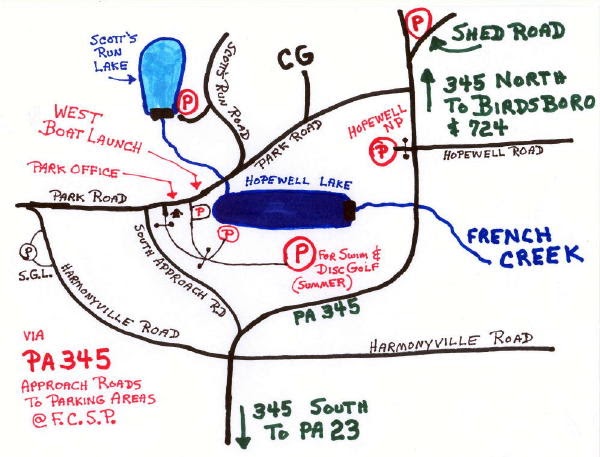 SCOTT'S
RUN
LAKE
P
SCOTT'S RUN ROAD
CG
P
SHED ROAD
345 NORTH
TO BIRDSBORO
& 724
WEST
BOAT LAUNCH
PARK OFFICE
PARK ROAD
PARK ROAD
HOPEWELL
NP
P
HOPEWELL ROAD
HOPEWELL LAKE
P
P
P
FOR SWIM &
DISC GOLF
(SUMMER)
FRENCH
CREEK
P
S.G.L.
SOUTH APPROACH RD
HARMONYVILLE ROAD
PA 345
HARMONYVILLE ROAD
VIA
PA 345
APPROACH ROADS
TO PARKING AREAS
@ F.C.S.P.
345 SOUTH
TO PA 23